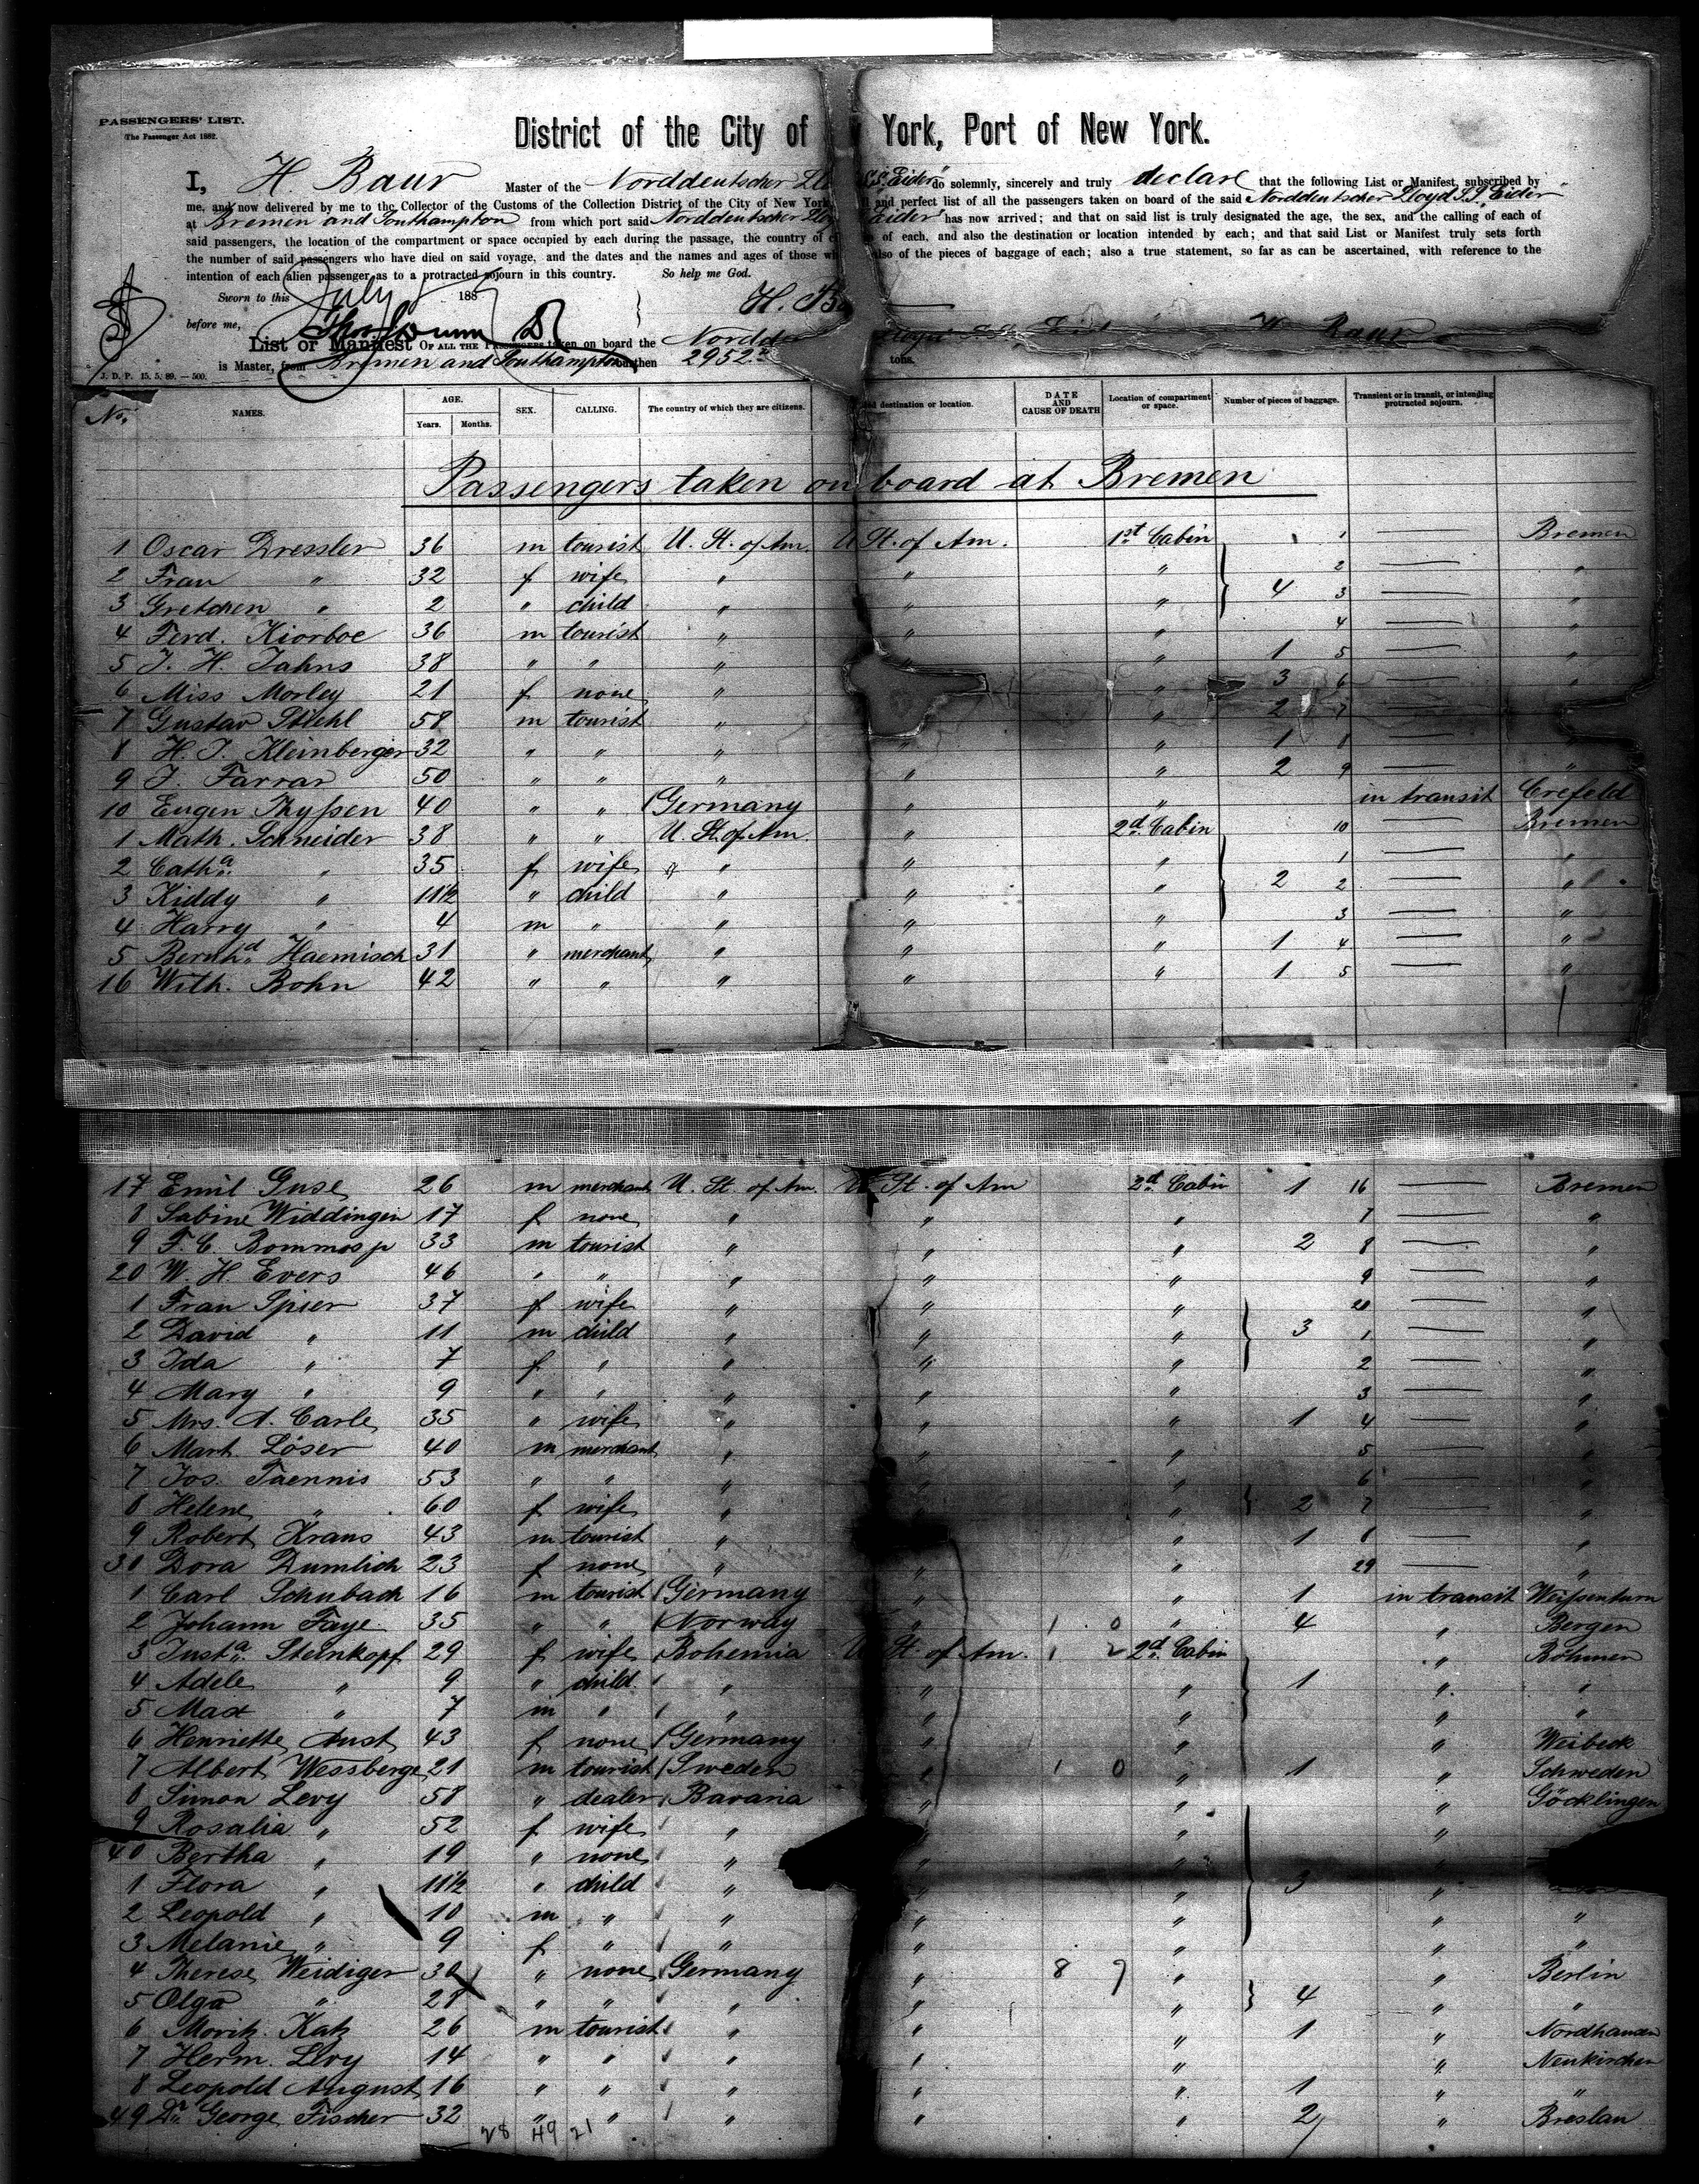 PASSENGERS' LIST.
The Passenger Act 1882.
District of the City of York, Port of New York.
I, H. Baur Master of the Norddeutscher S.S. "Eider" do solemnly, sincerely and truly declare that the following List or Manifest, subscribed by
me, and now delivered by me to the Collector of the Customs of the Collection District of the City of New York and perfect list of all the passengers taken on board of the said Norddeutscher Lloyd S.S. Eider
at Bremen and Southampton from which port said Norddeutscher Eider has now arrived; and that on said list is truly designated the age, the sex, and the calling of each of
said passengers, the location of the compartment or space occupied by each during the passage, the country of of each, and also the destination or location intended by each; and that said List or Manifest truly sets forth
the number of said passengers who have died on said voyage, and the dates and the names and ages of those also of the pieces of baggage of each; also a true statement, so far as can be ascertained, with reference to the
intention of each alien passenger as to a protracted sojourn in this country. So help me God.
Sworn to this July 8 188
H. Ba
before me,
List or Manifest OF ALL THE PASSENGERS taken on board the Baur
is Master, from Bremen and Southampton burthen 2952 tons.
J. D. P. 15. 5. 89. — 500.
No. NAMES. AGE. Years. Months. SEX. CALLING. The country of which they are citizens. destination or location. DATE AND CAUSE OF DEATH Location of compartment or space. Number of pieces of baggage. Transient or in transit, or intending protracted sojourn.
Passengers taken on board at Bremen
1 Oscar Dressler 36 m tourist U. St. of Am. U St. of Am. 1st Cabin 1 — Bremen
2 Frau " 32 f wife " " " 2 — "
3 Gretchen " 2 " child " " " 4 3 — "
4 Ferd. Kiorboe 36 m tourist " " " 4 — "
5 J. H. Jahns 38 " " " " " 1 5 — "
6 Miss Morley 21 f none " " 3 6 —
7 Gustav Stiehl 58 m tourist " " 2 7 —
8 H. J. Kleinberger 32 " " " " " 1 8 — "
9 J. Farrar 50 " " " " " 2 9 — "
10 Eugen Thyssen 40 " " Germany " " in transit Crefeld
1 Math. Schneider 38 " " U. St. of Am. " 2d Cabin 10 — Bremen
2 Catha. " 35 f wife " " " 1 — "
3 Kiddy " 11½ " child " " " 2 2 — "
4 Harry " 4 m " " " " 3 — "
5 Bernhd. Haemisch 31 " merchant " " " 1 4 — "
16 Wilh. Bohn 42 " " " " " 1 5 — "
17 Emil Guse 26 m merchant U. St. of Am. U St. of Am 2d Cabin 1 16 — Bremen
8 Sabine Widdingen 17 f none " " " 7 — "
9 F. C. Bommos jr 33 m tourist " " " 2 8 — "
20 W. H. Evers 46 " " " " " 9 — "
1 Frau Spier 37 f wife " " " 20 — "
2 David " 11 m child " " " 3 1 — "
3 Ida " 7 f " " " " 2 — "
4 Mary " 9 " " " " " 3 — "
5 Mrs. A. Carle 35 " wife " " " 1 4 — "
6 Mart. Löser 40 m merchant " " " 5 — "
7 Jos. Jaennis 53 " " " " 6 — "
8 Helene " 60 f wife " " 2 7 — "
9 Robert Kraus 43 m tourist " " 1 8 — "
30 Dora Dumlich 23 f none " " 29 — "
1 Carl Schubach 16 m tourist Germany " " 1 in transit Weissenturn
2 Johann Faye 35 " " Norway " 1 0 " 4 " Bergen
3 Justa. Steinkopf 29 f wife Bohemia U St. of Am. 1 2 2d Cabin " Böhmen
4 Adele " 9 " child " " " 1 " "
5 Max " 7 m " " " " " "
6 Henriette Aust 43 f none Germany " " " Weibeck
7 Albert Wessberge 21 m tourist Sweden " 1 0 " 1 " Schweden
8 Simon Levy 58 " dealer Bavaria " " " Göcklingen
9 Rosalia " 52 f wife " " " "
40 Bertha " 19 " none " " "
1 Flora " 11½ " child " " " 3 "
2 Leopold " 10 m " " " " " "
3 Melanie " 9 f " " " " " "
4 Therese Weidiger 30 " none Germany " 8 9 " " Berlin
5 Olga " 28 " " " " " 4 " "
6 Moritz Katz 26 m tourist " " " 1 " Nordhausen
7 Herm. Levy 14 " " " " " " Neukirchen
8 Leopold August 16 " " " " " 1 " "
49 Dr. George Fischer 32 " " " " " 2 " Breslau
28 49 21